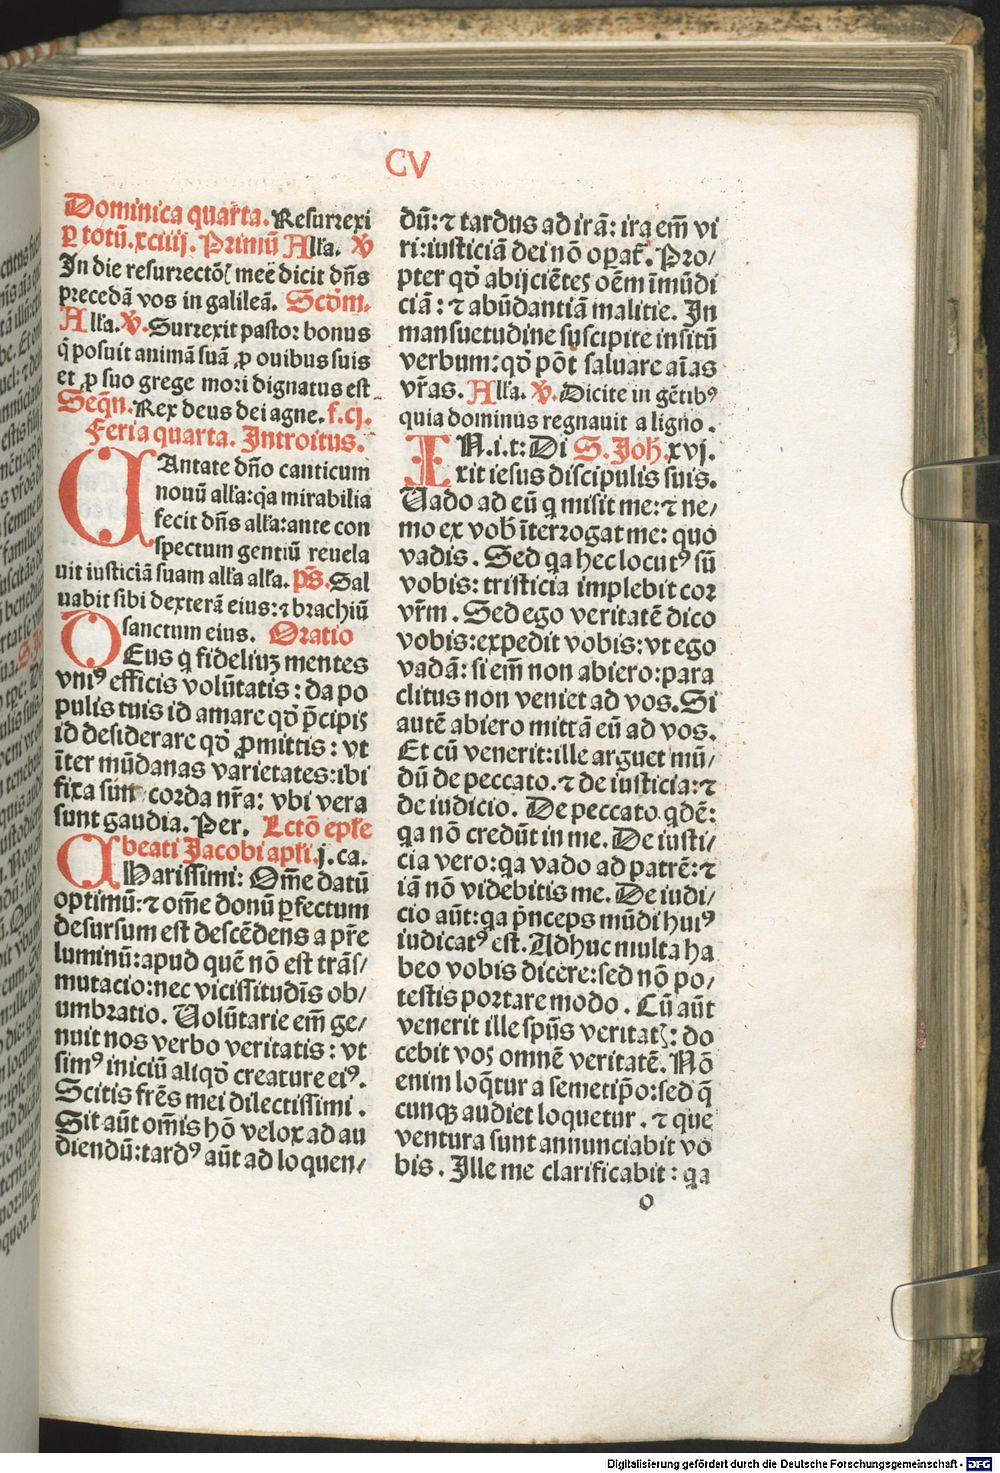 CV
Dominica quarta. Resurrexi
ꝑ totū. xciiij. Primū Alła. ℣
In die resurrectōꝭ meę dicit dn̄s
precedā vos in galileā. Scdm̄.
Alła. ℣. Surrexit pastor bonus
q̄ posuit animā suā ꝓ ouibus suis
et ꝓ suo grege mori dignatus est
Seqn̄. Rex deus dei agne. f. cj.
Feria quarta. Introitus.
CAntate dn̄o canticum
nouū alła: q̄a mirabilia
fecit dn̄s alła: ante con
spectum gentiū reuela
uit iusticiā suam alła alła. ps̄. Sal
uabit sibi dexterā eius: ⁊ brachiū
sanctum eius. Oratio
DEus q̄ fideliuꝫ mentes
vniꝰ efficis volūtatis: da po
pulis tuis id amare qd̄ p̄cipis
id desiderare qd̄ ꝓmittis: vt
īter mūdanas varietates: ibi
fixa sun corda nr̄a: vbi vera
sunt gaudia. Per. Lctō epłe
beati Jacobi apłi. j. ca.
CHarissimi: Om̄e datū
optimū: ⁊ om̄e donū ꝑfectum
desursum est descēdens a pr̄e
luminū: apud quē nō est trās/
mutacio: nec vicissitudīs ob/
umbratio. Uolūtarie em̄ ge/
nuit nos verbo veritatis: vt
simꝰ iniciū aliqd̄ creature eiꝰ.
Scitis fr̄es mei dilectissimi.
Sit aūt om̄is hō velox ad au
diendū: tardꝰ aūt ad loquen/
dū: ⁊ tardus ad irā: ira em̄ vi
ri: iusticiā dei nō oꝑat̄. Pro/
pter qd̄ abijciētes oēm īmūdi
ciā: ⁊ abūdantiā malitie. In
mansuetudine suscipite insitū
verbum: qd̄ pōt saluare aīas
vr̄as. Alła. ℣. Dicite in gētibꝰ
quia dominus regnauit a ligno.
IN. i. t: Di S. Joh. xvj.
xit iesus discipulis suis.
Uado ad eū q̄ misit me: ⁊ ne/
mo ex vob̄ īterrogat me: quo
vadis. Sed q̄a hec locutꝰ sū
vobis: tristicia implebit cor
vr̄m. Sed ego veritatē dico
vobis: expedit vobis: vt ego
vadā: si em̄ non abiero: para
clitus non veniet ad vos. Si
autē abiero mittā eū ad vos.
Et cū venerit: ille arguet mū/
dū de peccato. ⁊ de iusticia: ⁊
de iudicio. De peccato. q̄dē:
q̄a nō credūt in me. De iusti/
cia vero: q̄a vado ad patrē: ⁊
iā nō videbitis me. De iudi/
cio aūt: q̄a p̄nceps mūdi huiꝰ
iudicatꝰ est. Adhuc multa ha
beo vobis dicere: sed nō po/
testis portare modo. Cū aūt
venerit ille spūs veritatꝭ: do
cebit vos omnē veritatē. Nō
enim loq̄tur a semetip̄o: sed q̄
cunqꝫ audiet loquetur. ⁊ que
ventura sunt annunciabit vo
bis. Ille me clarificabit: q̄a
o
Digitalisierung gefördert durch die Deutsche Forschungsgemeinschaft - DFG